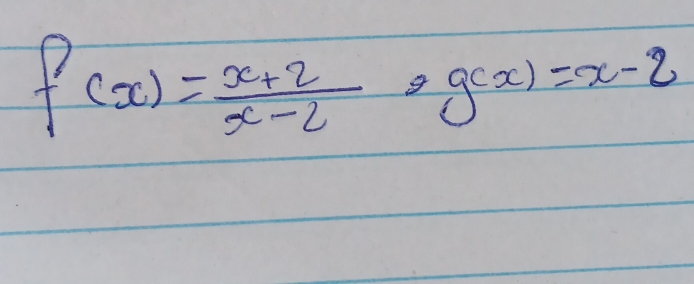 f(x) = \frac{x+2}{x-2} , g(x) = x-2